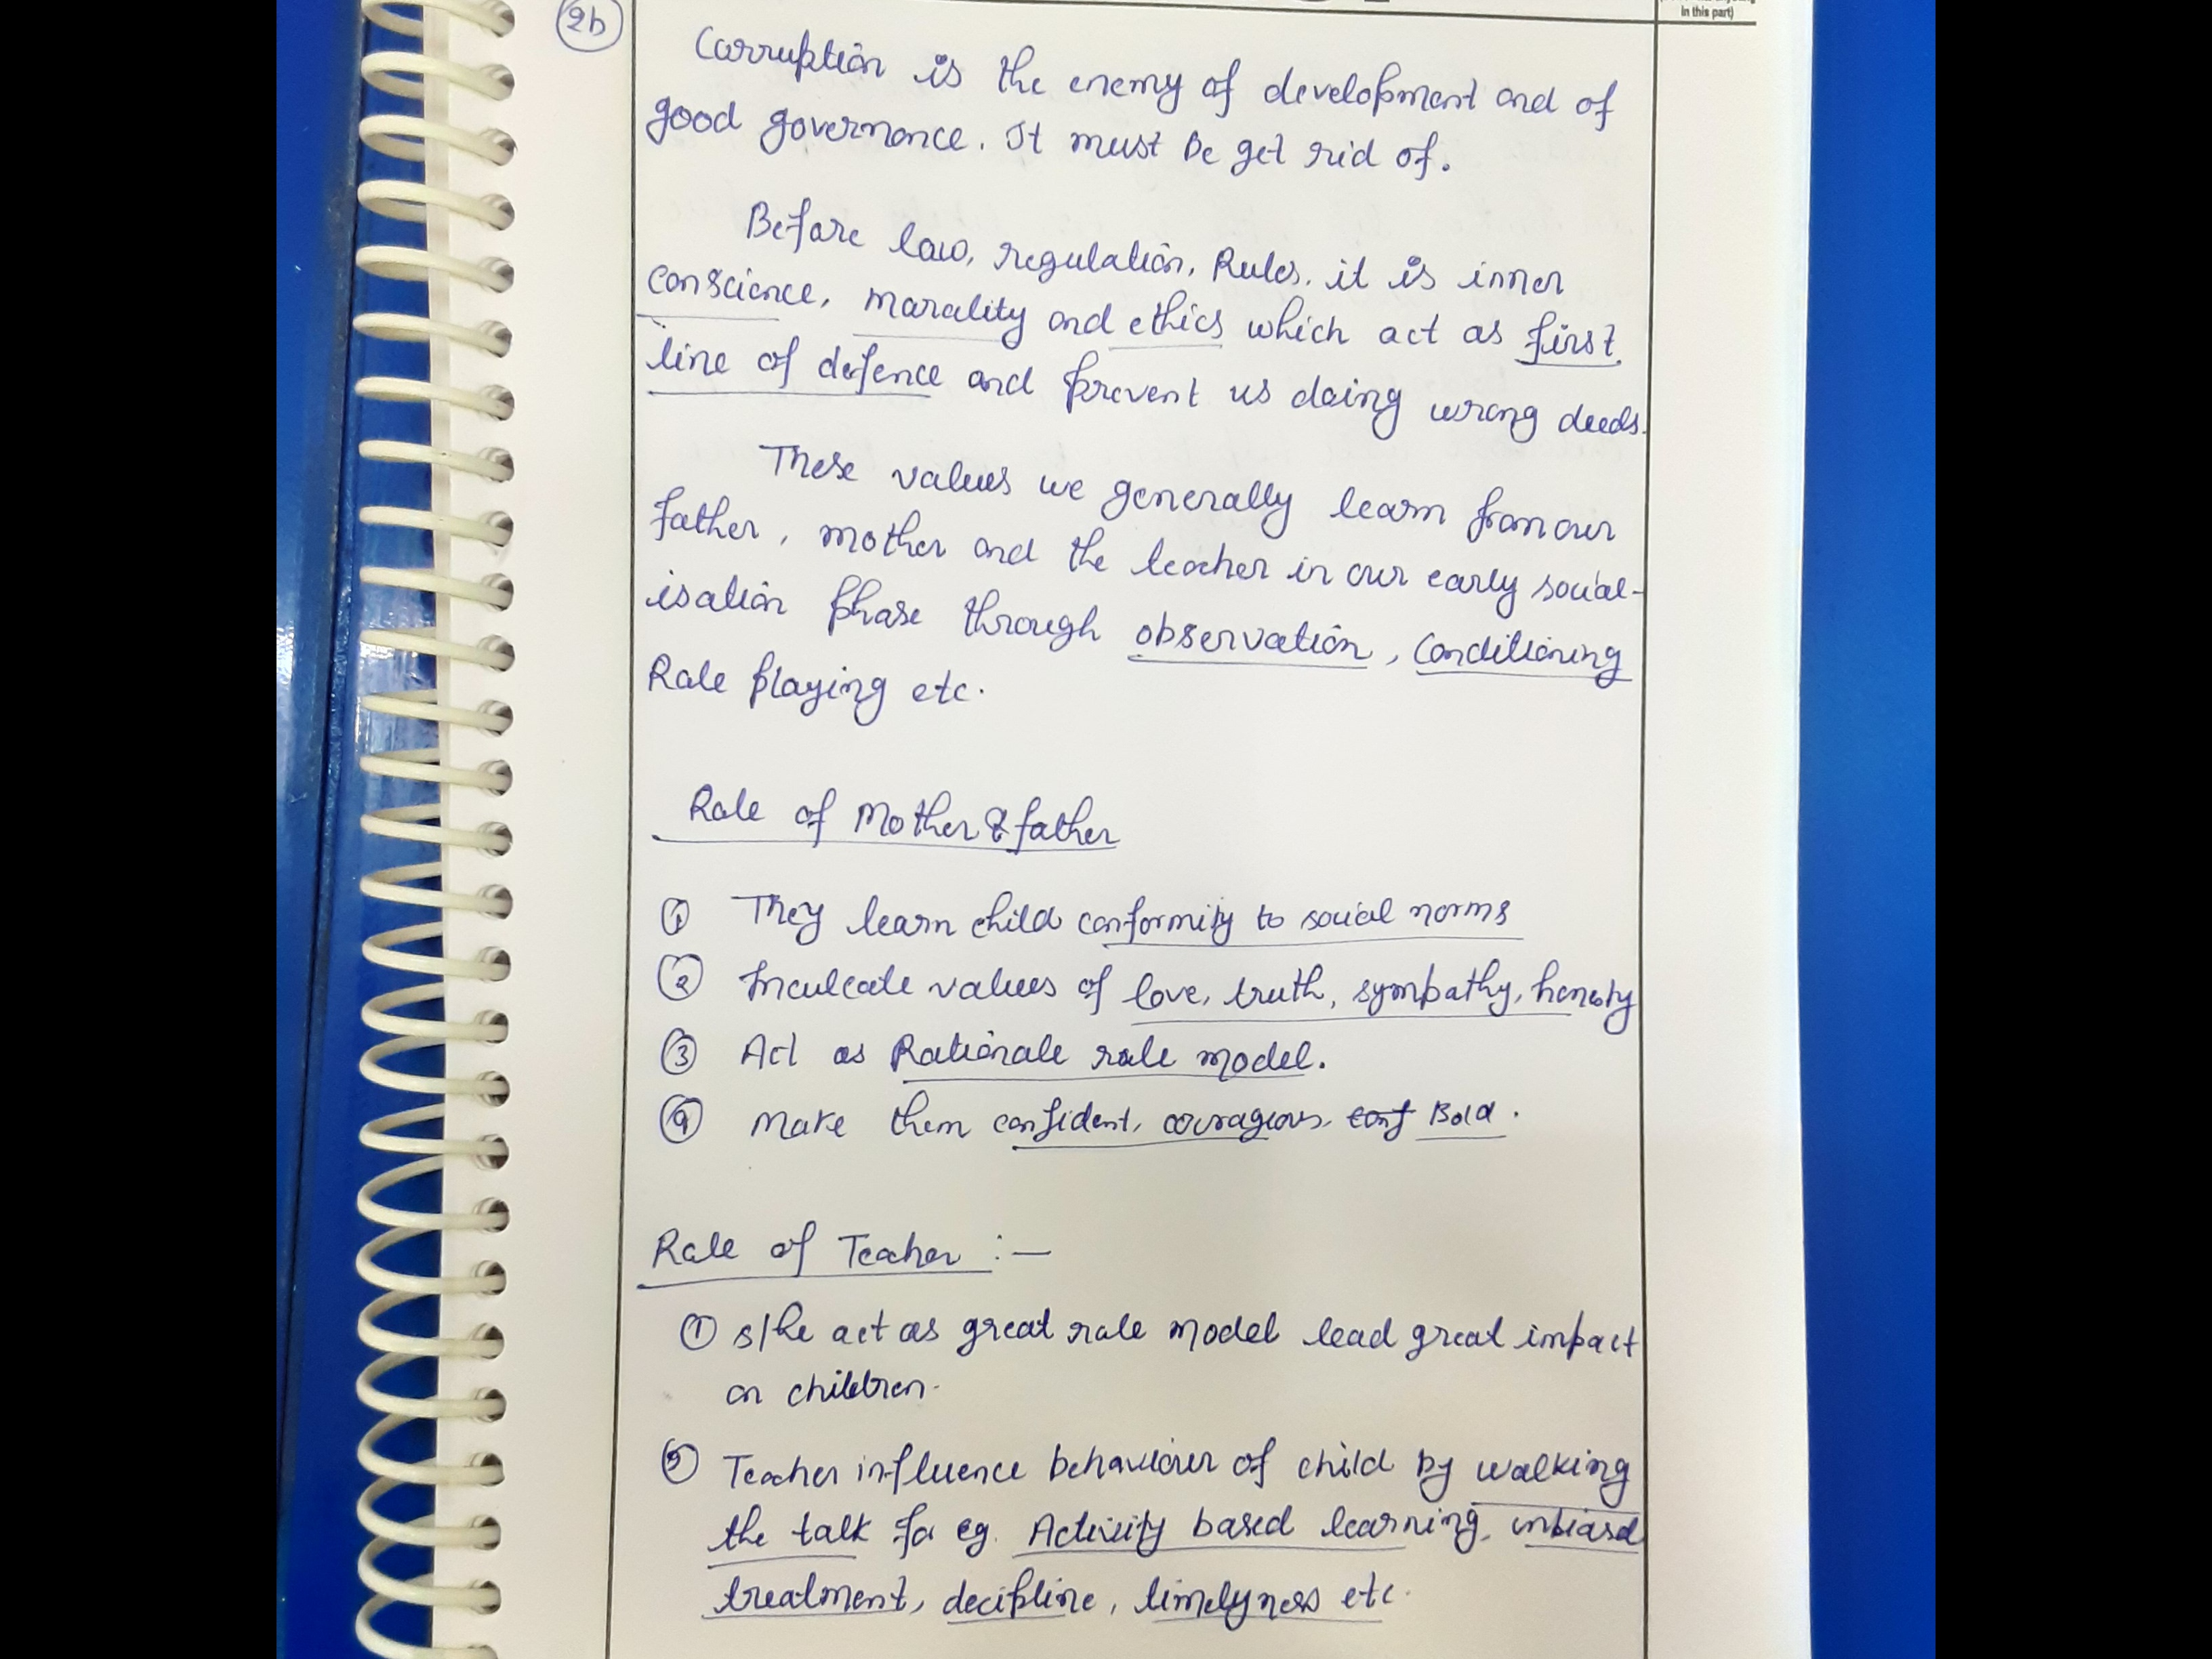 in this part)
2b
Corruption is the enemy of development and of
good governance. It must be get rid of.
Before law, regulation, Rules, it is inner
conscience, morality and ethics which act as first
line of defence and prevent us doing wrong deeds.
These values we generally learn from our
father, mother and the teacher in our early social-
isation phase through observation, conditioning
Role playing etc.
Role of Mother & father
① They learn child conformity to social norms
② Inculcate values of love, truth, sympathy, honesty
③ Act as Rationale role model.
④ Make them confident, couragious, conf Bold.
Role of Teacher :—
① s/he act as great role model lead great impact
on children.
② Teacher influence behaviour of child by walking
the talk for eg. Activity based learning, unbiasd
treatment, decipline, timelyness etc.